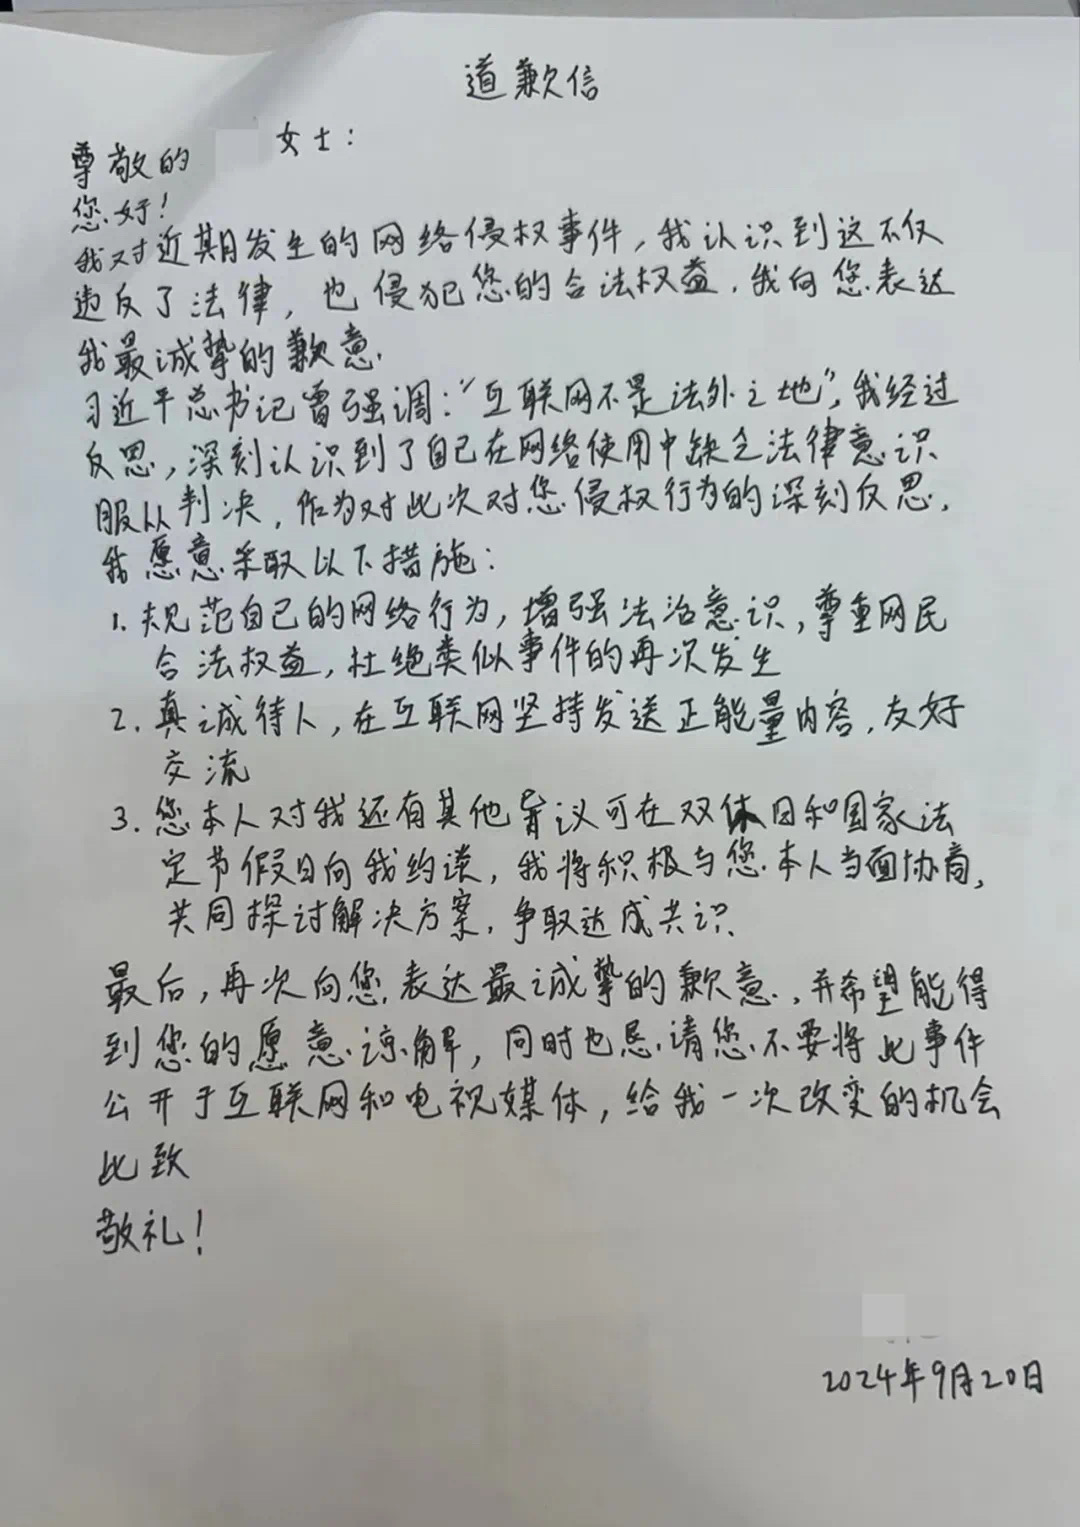 道歉信
尊敬的 女士：
您好！
我对近期发生的网络侵权事件，我认识到这不仅
违反了法律，也侵犯您的合法权益，我向您表达
我最诚挚的歉意.
习近平总书记曾强调：“互联网不是法外之地”，我经过
反思，深刻认识到了自己在网络使用中缺乏法律意识
服从判决，作为对此次对您侵权行为的深刻反思，
我愿意采取以下措施：
1. 规范自己的网络行为，增强法治意识，尊重网民
合法权益，杜绝类似事件的再次发生
2. 真诚待人，在互联网坚持发送正能量内容，友好
交流
3. 您本人对我还有其他 议可在双休日和国家法
定节假日向我约谈，我将积极与您本人当面协商，
共同探讨解决方案，争取达成共识.
最后，再次向您表达最诚挚的歉意，并希望能得
到您的愿意谅解，同时也恳请您不要将此事件
公开于互联网和电视媒体，给我一次改变的机会
此致
敬礼！
2024年9月20日